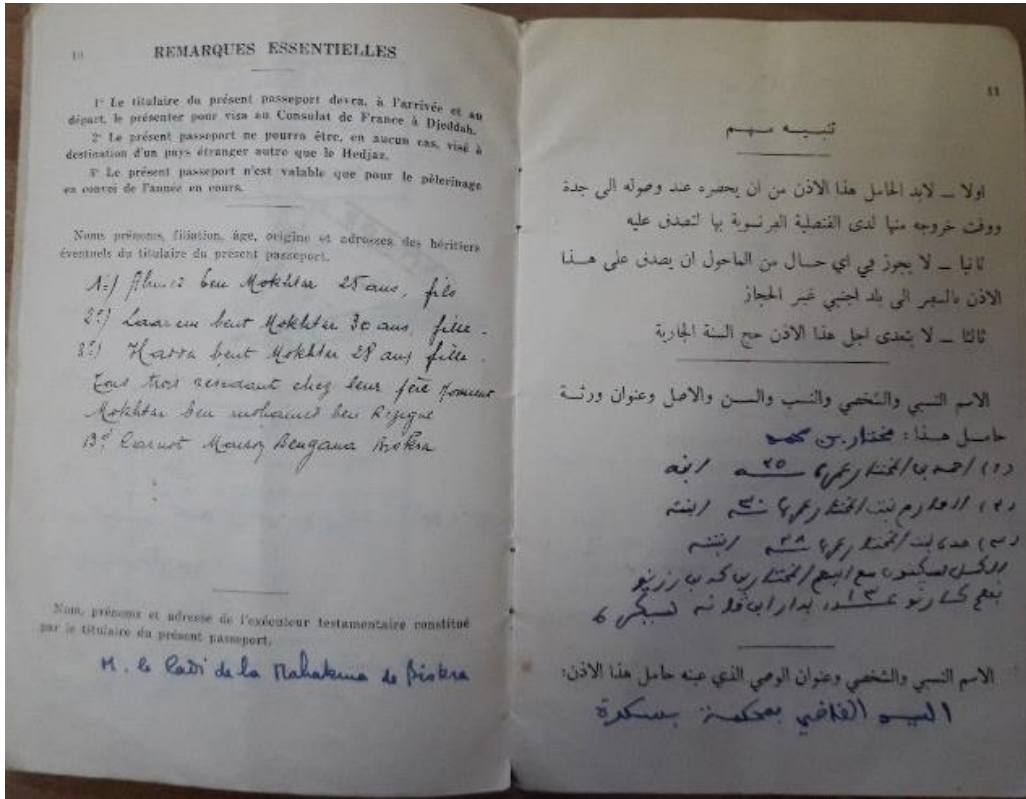 10
REMARQUES ESSENTIELLES
1° Le titulaire du présent passeport devra, à l'arrivée et au
départ, le présenter pour visa au Consulat de France à Djeddah.
2° Le présent passeport ne pourra être, en aucun cas, visé à
destination d'un pays étranger autre que le Hedjaz.
3° Le présent passeport n'est valable que pour le pèlerinage
en convoi de l'année en cours.
Noms prénoms, filiation, âge, origine et adresses des héritiers
éventuels du titulaire du présent passeport.
1°) Ahmed ben Mokhtar 25 ans, fils
2°) Laarem bent Mokhtar 30 ans, fille.
3°) Hadda bent Mokhtar 28 ans, fille.
Tous trois residant chez leur
Mokhtar ben mohamed ben Rezigue
Bd Carnot Maison Bengana Biskra
Nom, prénoms et adresse de l'exécuteur testamentaire constitué
par le titulaire du présent passeport.
M. le Cadi de la Mahakma de Biskra
11
تنبيه مهم
اولا ــ لابد لحامل هذا الاذن من ان يحضره عند وصوله إلى جدة
ووقت خروجه منها لدى القنصلية الفرنسوية بها لتصدق عليه
ثانيا ــ لا يجوز في اي حال من الماحول ان يصدق على هذا
الاذن بالسفر الى بلد اجنبي غير الحجاز
ثالثا ــ لا يتعدى اجل هذا الاذن حج السنة الجارية
الاسم النسبي والشخصي والنسب والسن والاصل وعنوان ورثة
حامل هذا : مختار بن محمد
احمد بن المختار عمره ٢٥ سنة ابنه
بنت المختار عمرها ٣٠ سنة ابنته
حدة بنت المختار عمرها ٢٨ سنة ابنته
يسكنون مع ابيهم المختار بن محمد بن رزيق
كارنو
الاسم النسبي والشخصي وعنوان الوصي الذي عينه حامل هذا الاذن:
السيد القاضي بمحكمة بسكرة